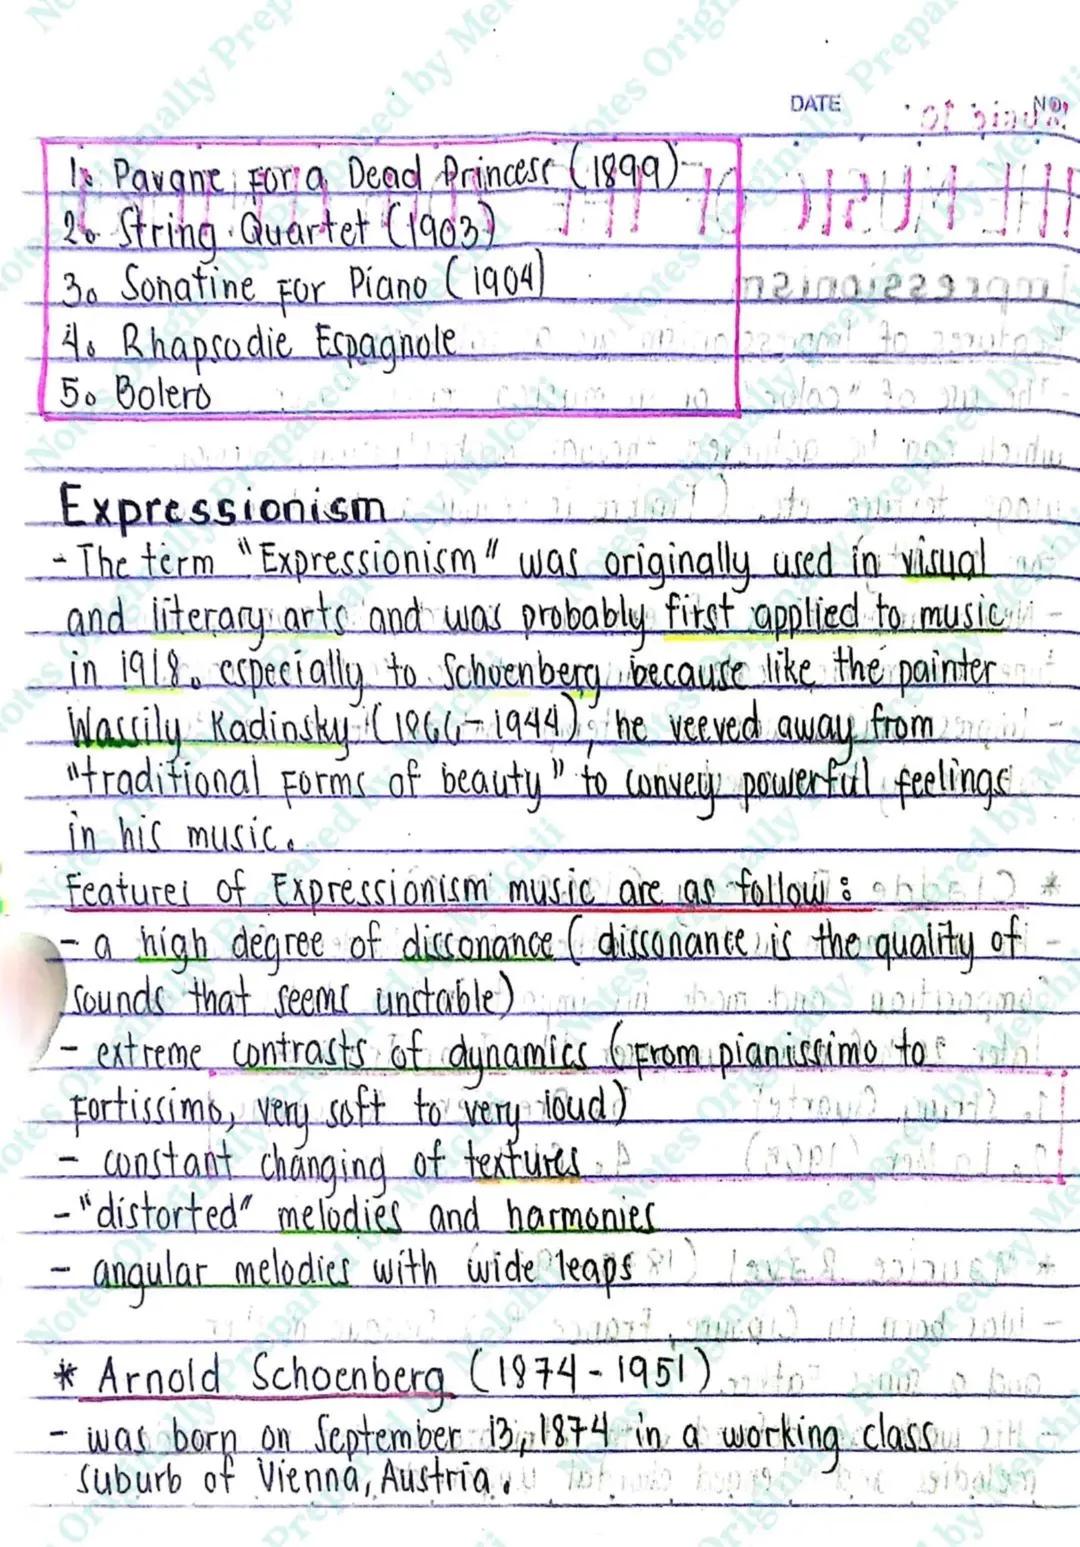 DATE NO.
1. Pavane For a Dead Princess (1899)
2. String Quartet (1903)
3. Sonatine For Piano (1904)
4. Rhapsodie Espagnole
5. Bolero
Expressionism
- The term "Expressionism" was originally used in visual
and literary arts and was probably first applied to music
in 1918. especially to Schoenberg because like the painter
Wassily Kadinsky (1866-1944), he veeved away from
"traditional Forms of beauty" to convey powerful feelings
in his music.
Features of Expressionism music are as follow:
- a high degree of dissonance (dissonance is the quality of
sounds that seems unstable)
- extreme contrasts of dynamics (From pianissimo to
Fortissimo, very soft to very loud)
- constant changing of textures
- "distorted" melodies and harmonies
- angular melodies with wide leaps
* Arnold Schoenberg (1874-1951)
- was born on September 13, 1874 in a working class
suburb of Vienna, Austria.
Notes Originally Prepared by Melchii